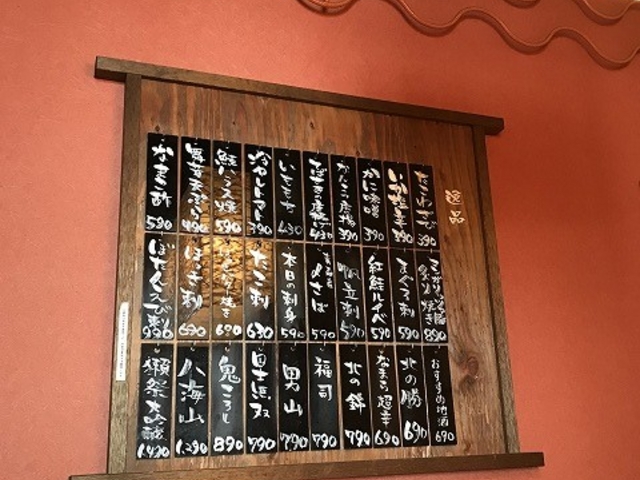 逸品
たこわさび 390
いか塩辛 390
かに味噌 390
なんこつ唐揚 390
430
いももち 430
冷やしトマト 390
鮭ハラス焼 590
舞茸天ぷら 490
なまこ酢 590
890
まぐろ刺 590
紅鮭ルイベ 590
帆立刺 590
〆さば 590
本日の刺身 590
たこ刺 630
バター焼き 690
ほっき刺 690
ぼたんえび刺 990
おすすめ地酒 690
北の勝 690
なまら超辛 690
北の錦 790
福司 790
男山 790
国士無双 790
鬼ころし 890
八海山 1,290
獺祭大吟醸 1,490